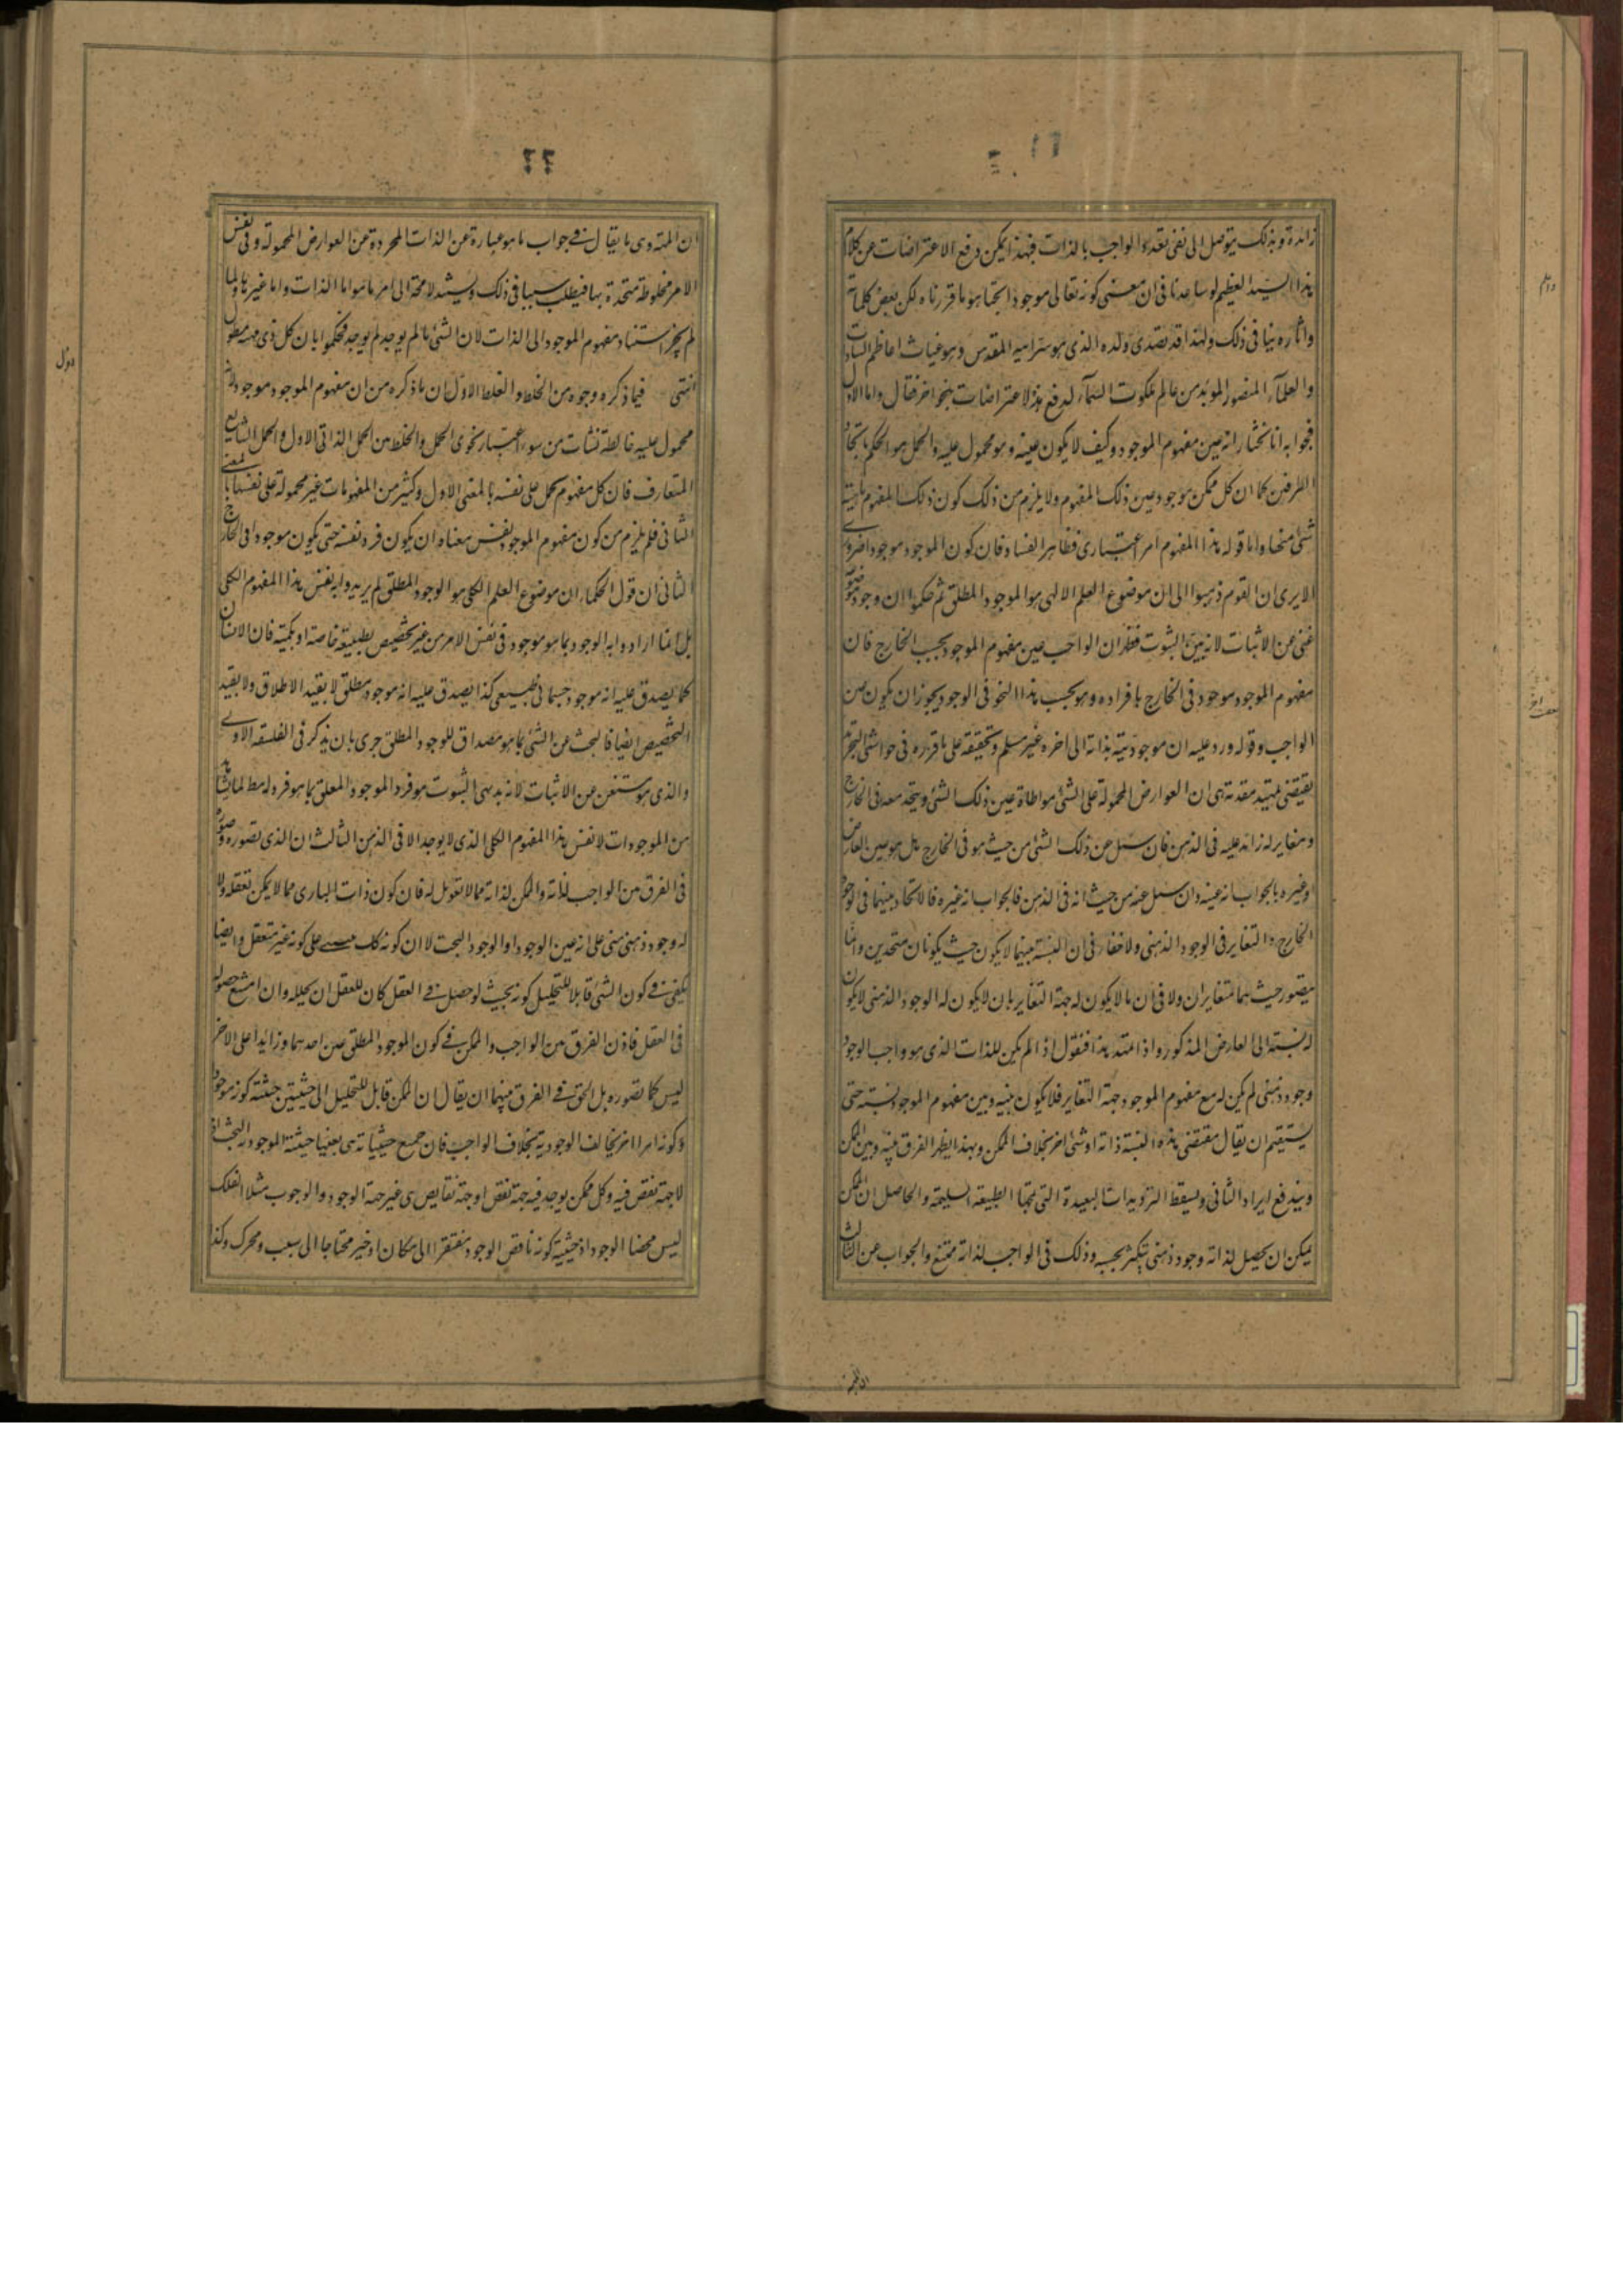 زائدة وبذلك يتوصل الى نفى تعدد الواجب بالذات فبهذا يمكن دفع الاعتراضات عن كلام
هذا السيد العظيم لو ساعدنا فى ان معنى كونه تعالى موجودا بحتا هو ما قررناه لكن بعض كلماته
واثاره ينافى ذلك ولهذا قد تصدى ولده الذى هو سر ابيه المقدس وهو غياث اعاظم السادات
والعلماء المنصور المؤيد من عالم ملكوت السماء لدفع هذه الاعتراضات بنحو اخر فقال واما الاول
فجوابه انا نختار انه عين مفهوم الموجود وكيف لا يكون عينه وهو محمول عليه والحمل هو الحكم باتحاد
الطرفين كما ان كل ممكن موجود عين ذلك المفهوم ولا يلزم من ذلك كون ذلك المفهوم ماهية
شئ منها واما قوله هذا المفهوم امر اعتبارى فظاهر الفساد فان كون الموجود موجودا ضرورى
الا يرى ان القوم ذهبوا الى ان موضوع العلم الالهى هو الموجود المطلق ثم حكموا ان وجود موضوعه
غنى عن الاثبات لانه بين الثبوت فظهر ان الواجب عين مفهوم الموجود بحسب الخارج فان
مفهوم الموجود موجود فى الخارج بافراده وهو بحسب هذا النحو فى الوجود يجوز ان يكون عين
الواجب وقوله ورد عليه ان موجوديته بذاته الى اخره غير مسلم وتحقيقه على ما قرره فى حواشى التجريد
يقتضى تمهيد مقدمة هى ان العوارض المحمولة على الشئ مواطاة عين ذلك الشئ ويتحد معه فى الخارج
ومغاير له زائد عليه فى الذهن فان سئل عن ذلك الشئ من حيث هو فى الخارج هل هو عين العارض
او غيره بالجواب انه عينه وان سئل عنه من حيث انه فى الذهن فالجواب انه غيره فالاتحاد بينهما فى الوجود
الخارجى والتغاير فى الوجود الذهنى ولا خفاء فى ان النسبة بينهما لا يكون حيث يكونان متحدين وانما
يتصور حيث هما متغايران ولا فى ان ما لا يكون له جهة التغاير بان لا يكون له الوجود الذهنى لا يكون
له نسبة الى العارض المذكور واذا تمهد هذا فنقول اذ الم يكن للذات الذى هو واجب الوجود
وجود ذهنى لم يكن له مع مفهوم الموجود جهة التغاير فلا يكون بينه وبين مفهوم الموجود نسبة حتى
يستقيم ان يقال مقتضى هذه النسبة ذاته او شئ اخر بخلاف الممكن وبهذا يظهر الفرق بينه وبين الممكن
ويندفع ايراد الثانى ويسقط الترديدات البعيدة التى تمجها الطبيعة السليمة والحاصل ان الممكن
يمكن ان يحصل لذاته وجود ذهنى يتكثر بحسبه وذلك فى الواجب لذاته ممتنع والجواب عن الثالث
٢٢
ان المهية وى ما يقال فى جواب ما هو عبارة عن الذات المجردة عن العوارض المحمولة وفى نفس
الامر مخلوطة متحدة بها فيطلب سببا فى ذلك ويستند لا محة الى امر ما هو اما الذات واما غيرها ولما
لم يجز استناد مفهوم الموجود الى الذات لان الشئ ما لم يوجد لم يوجد فحكموا بان كل ذى مهية معلول
انتهى فيما ذكره وجوه من الخلط والغلط الاول ان ما ذكره من ان مفهوم الموجود موجود لانه
محمول عليه مغالطة نشأت من سوء اعتبار نحوى الحمل والخلط بين الحمل الذاتى الاول والحمل الشايع
المتعارف فان كل مفهوم يحمل على نفسه بالمعنى الاول وكثير من المفهومات غير محمولة على نفسها بالمعنى
الثانى فلم يلزم من كون مفهوم الموجود نفس معناه ان يكون فرد نفسه حتى يكون موجودا فى الخارج
الثانى ان قول الحكماء ان موضوع العلم الكلى هو الوجود المطلق لم يريدوا به نفس هذا المفهوم الكلى
بل انما ارادوا به الوجود بما هو موجود فى نفس الامر من غير تخصيص بطبيعة خاصة او بكمية فان الانسان
كما يصدق عليه انه موجود جسمانى طبيعى كذا يصدق عليه انه موجود مطلق لا بقيد الاطلاق ولا بقيد
التخصيص ايضا فالبحث عن الشئ بما هو مصداق للوجود المطلق حرى بان يذكر فى الفلسفة الاولى
والذى هو مستغن عن الاثبات لانه بديهى الثبوت هو فرد الموجود المطلق بما هو فرد له مط لما يشاهد
من الموجودات لا نفس هذا المفهوم الكلى الذى لا يوجد الا فى الذهن الثالث ان الذى تصوره وصوره
فى الفرق من الواجب لذاته والممكن لذاته مما لا تعويل له فان كون ذات البارى مما لا يمكن تعقله ولا
له وجود ذهنى مبنى على انه عين الوجود او الوجود البحت لا ان كونه كك مبنى على كونه غير متعقل وايضا
يكفى فى كون الشئ قابلا للتحليل كونه بحيث لو حصل فى العقل كان للعقل ان يحلله وان امتنع حصوله
فى العقل فاذن الفرق بين الواجب والممكن فى كون الموجود المطلق عين احدهما وزائدا على الاخر
ليس كما تصوره بل الحق فى الفرق بينهما ان يقال ان الممكن قابل للتحليل الى حيثيتين حيثية كونه موجودا
وكونه امرا اخر يخالف الوجودية بخلاف الواجب فان جميع حيثياته هى بعينها حيثية الموجودية البحتة اذ
لا جهة نقص فيه وكل ممكن يوجد فيه جهة نقص او جهة نقايص هى غير جهة الوجود والوجوب مثلا الفلك
ليس محضا الوجود اذ حيثية كونه ناقص الوجود مفتقرا الى مكان او خير محتاجا الى سبب ومحرك وكذا